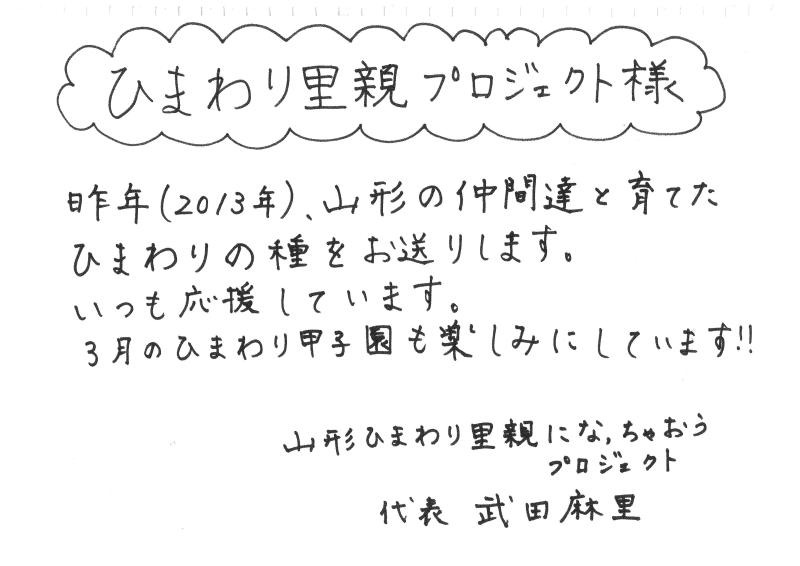 ひまわり里親プロジェクト様
昨年(2013年)、山形の仲間達と育てた
ひまわりの種をお送りします。
いつも応援しています。
3月のひまわり甲子園も楽しみにしています!!
山形ひまわり里親になっちゃおう
プロジェクト
代表 武田麻里